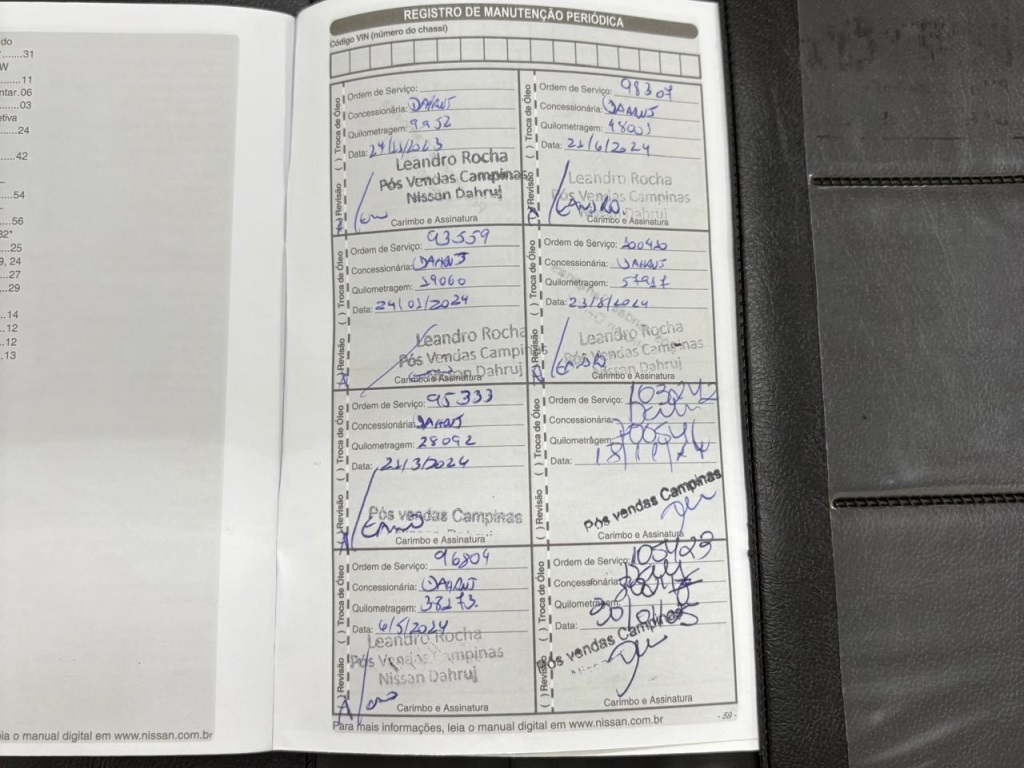 do
......31
W
......11
ntar.06
......03
etiva
......24
......42
......54
......56
32*
......25
9, 24
......27
......29
...14
..12
..12
..13
ia o manual digital em www.nissan.com.br
REGISTRO DE MANUTENÇÃO PERIÓDICA
Código VIN (número do chassi)
( ) Revisão ( ) Troca de Óleo
Ordem de Serviço:
Concessionária:
Quilometragem: 9952
Data: 24/11/2023
Leandro Rocha
Pós Vendas Campinas
Nissan Dahruj
Carimbo e Assinatura
( ) Revisão ( ) Troca de Óleo
Ordem de Serviço: 93559
Concessionária:
Quilometragem: 19060
Data: 24/01/2024
Leandro Rocha
Pós Vendas Campinas
Nissan Dahruj
Carimbo e Assinatura
( ) Revisão ( ) Troca de Óleo
Ordem de Serviço: 95333
Concessionária:
Quilometragem: 28092
Data: 21/3/2024
Pós vendas Campinas
Carimbo e Assinatura
( ) Revisão ( ) Troca de Óleo
Ordem de Serviço: 96804
Concessionária:
Quilometragem: 38273
Data: 6/5/2024
Leandro Rocha
Pós Vendas Campinas
Nissan Dahruj
Carimbo e Assinatura
( ) Revisão ( ) Troca de Óleo
Ordem de Serviço: 98307
Concessionária:
Quilometragem:
Data: 21/6/2024
Leandro Rocha
Pós Vendas Campinas
Nissan Dahruj
Carimbo e Assinatura
( ) Revisão ( ) Troca de Óleo
Ordem de Serviço:
Concessionária:
Quilometragem:
Data: 23/8/2024
Leandro Rocha
Pós Vendas Campinas
Nissan Dahruj
Carimbo e Assinatura
( ) Revisão ( ) Troca de Óleo
Ordem de Serviço: 103242
Concessionária:
Quilometragem:
Data:
Pós vendas Campinas
Carimbo e Assinatura
( ) Revisão ( ) Troca de Óleo
Ordem de Serviço: 105429
Concessionária:
Quilometragem:
Data:
Pós vendas Campinas
Carimbo e Assinatura
Para mais informações, leia o manual digital em www.nissan.com.br
- 59 -